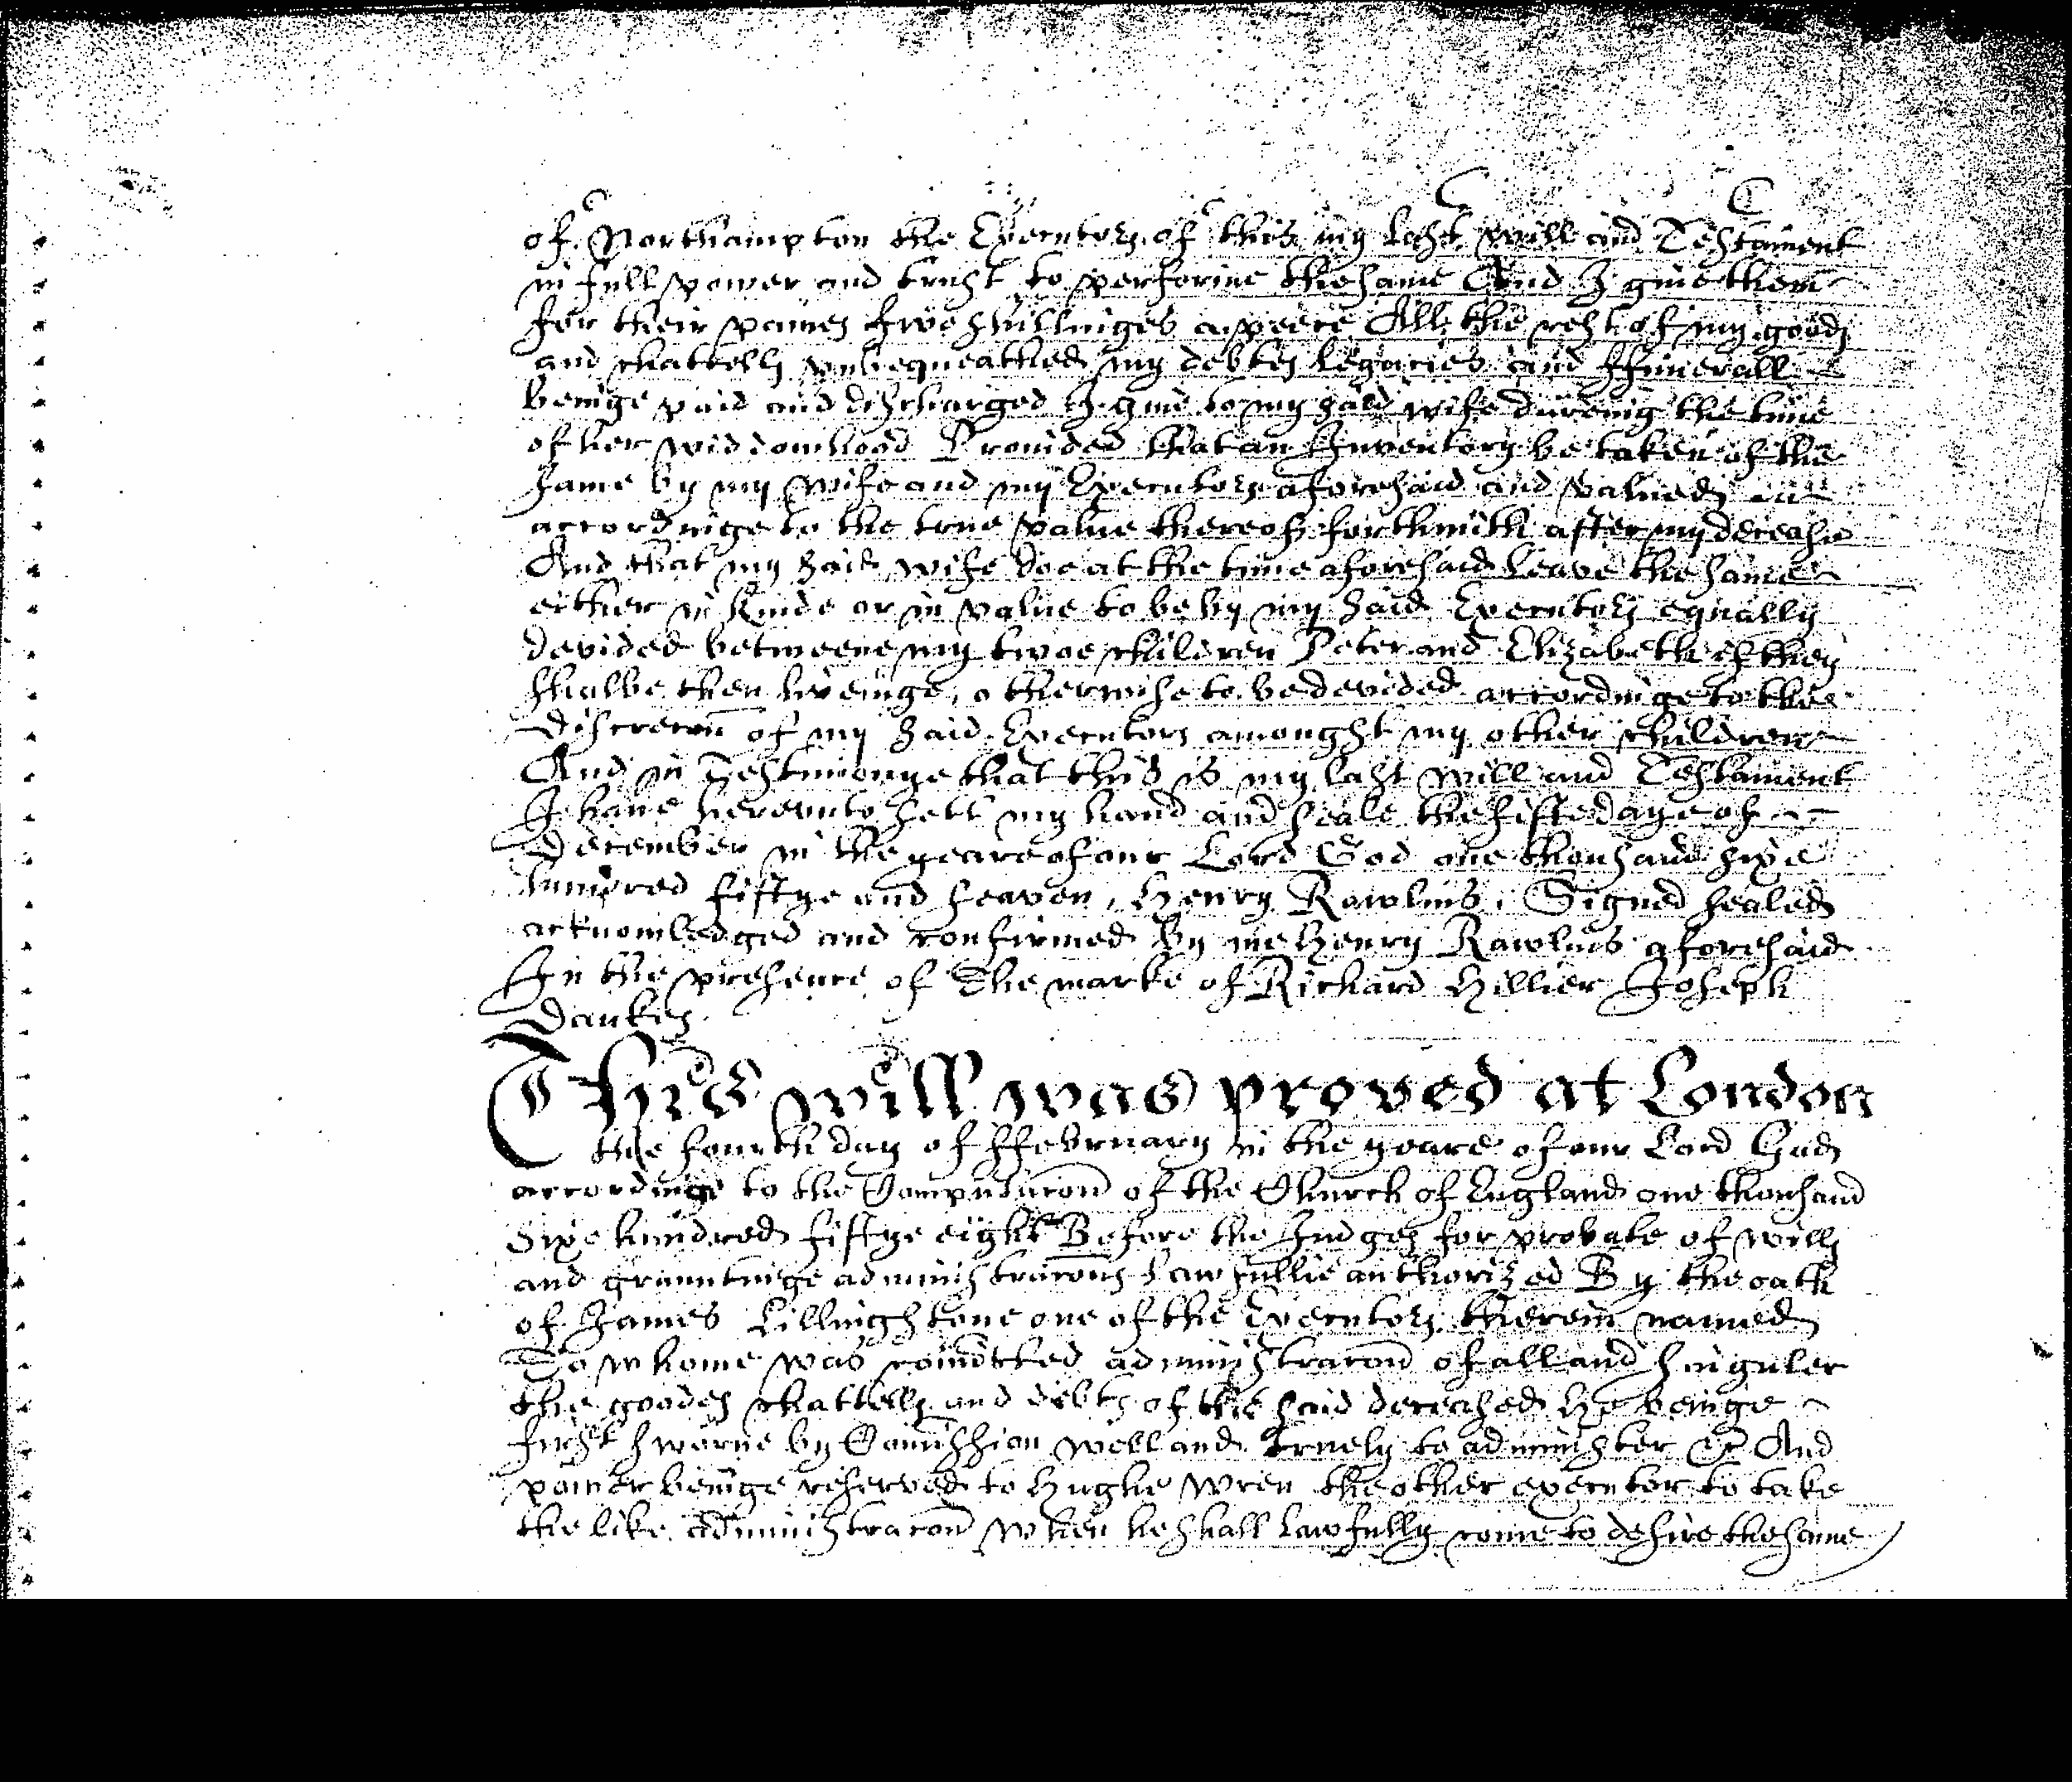 of Northampton the Executors of this my last will and Testament
in full power and trust to performe the same And I give them
for their paines five shillinges apeece All the rest of my goods
and chattells unbequeathed my debtes legacies and ffunerall
beinge paid and discharged I give to my said wife dureing the time
of her widdowhood Provided that an Inventory be taken of the
same by my wife and my Executors aforesaid and valued
accordinge to the true value thereof forthwith after my decease
And that my said wife doe at the time aforesaid leave the same
either in kinde or in value to be by my said Executors equally
devided betweene my twoe children Peter and Elizabeth if they
shalbe then liveinge, otherwise to be devided accordinge to the
discrecon of my said Executors amongst my other children
And in Testimonye that this is my last will and Testament
I have hereunto sett my hand and seale the fifte daye of
December in the yeare of our Lord God one thousand sixe
hundred fiftye and seaven, Henry Rawlins, Signed sealed
acknowledged and confirmed by me Henry Rawlins aforesaid
In the presence of The marke of Richard Hillier Joseph
Dankes
This will was proved at London
the fourth day of ffebruary in the yeare of our Lord God
accordinge to the Computacon of the Church of England one thousand
Sixe hundred fiftye eight Before the Judges for probate of wills
and grauntinge administracons lawfullie authorized By the oath
of James Lillingstone one of the Executors therein named
To whome was comitted administracon of all and singuler
the goodes chattells and debts of the said deceased He beinge
first sworne by Comission well and truely to administer &c And
power beinge reserved to Hughe Wren the other executor to take
the like administracon when he shall lawfully come to desire the same